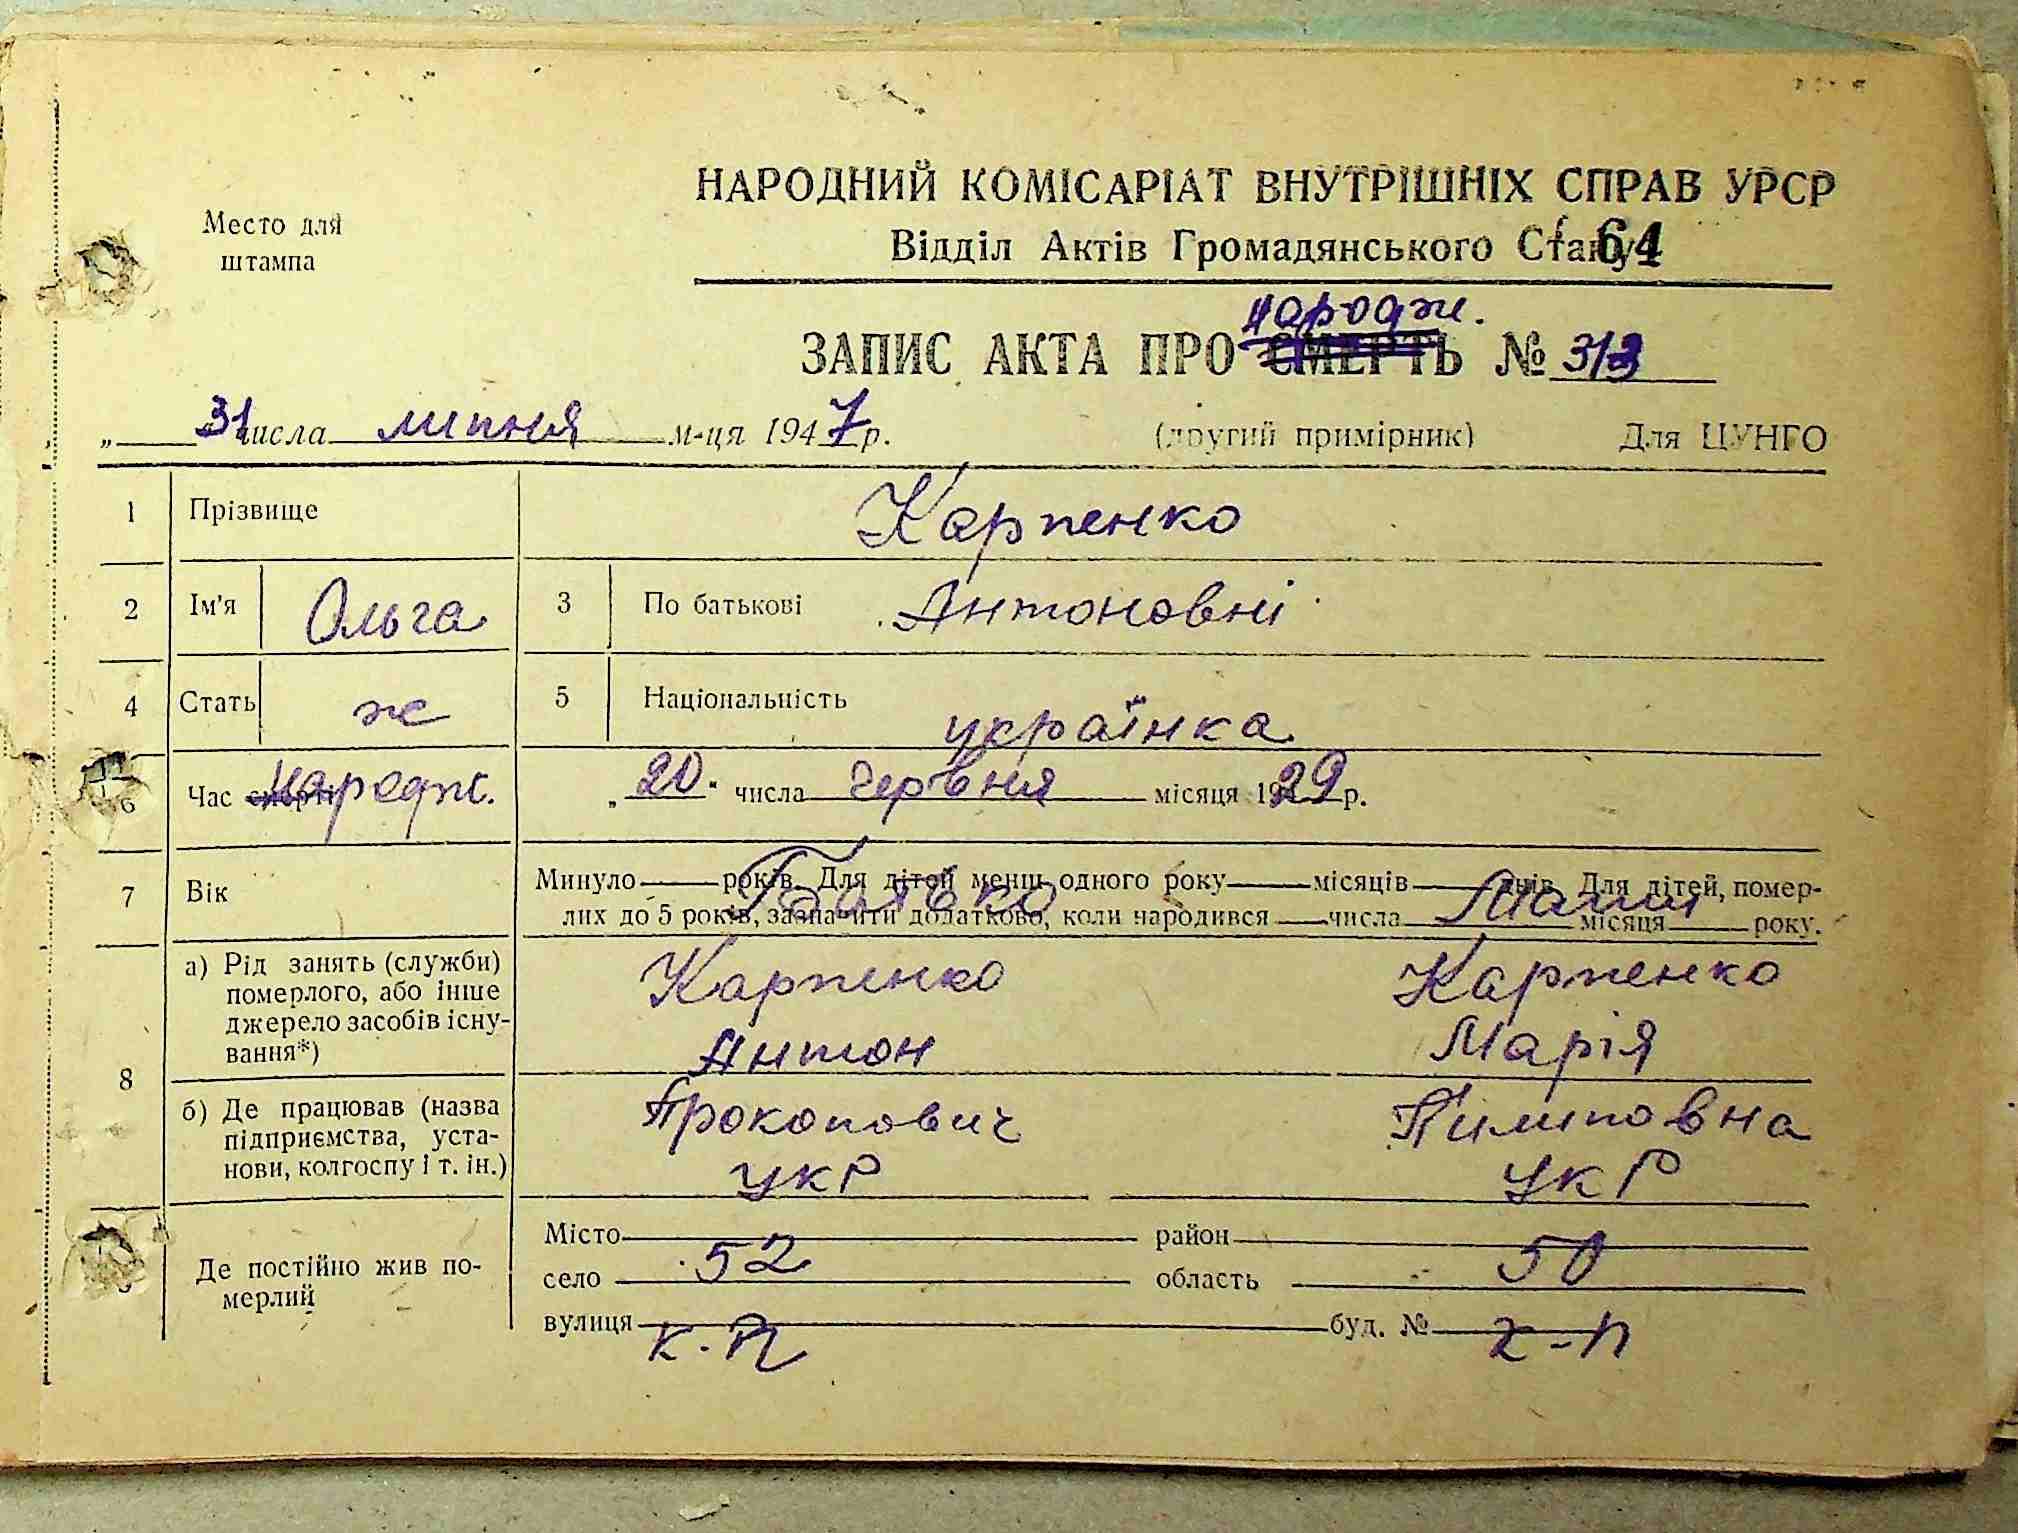 НАРОДНИЙ КОМІСАРІАТ ВНУТРІШНІХ СПРАВ УРСР
Место для штампа
Відділ Актів Громадянського Стану 64
народж.
ЗАПИС АКТА ПРО СМЕРТЬ № 313
„ 31 числа липня м-ця 1947 р. (другий примірник) Для ЦУНГО
1 Прізвище Карпенко
2 Ім'я Ольга 3 По батькові Антоновні
4 Стать ж 5 Національність українка
6 Час смерті народж. „ 20. числа червня місяця 1929 р.
7 Вік Минуло років. Для дітей менш одного року місяців днів. Для дітей, помер-
лих до 5 років, зазначити додатково, коли народився числа місяця року.
Батько Мати
8 а) Рід занять (служби) померлого, або інше джерело засобів існу-вання*)
Карпенко Карпенко
Антон Марія
б) Де працював (назва підприємства, уста-нови, колгоспу і т. ін.)
Прокопович Пилиповна
укр укр
Де постійно жив по-мерлий
Місто район
село 52 область 50
вулиця к-п буд. № х-п